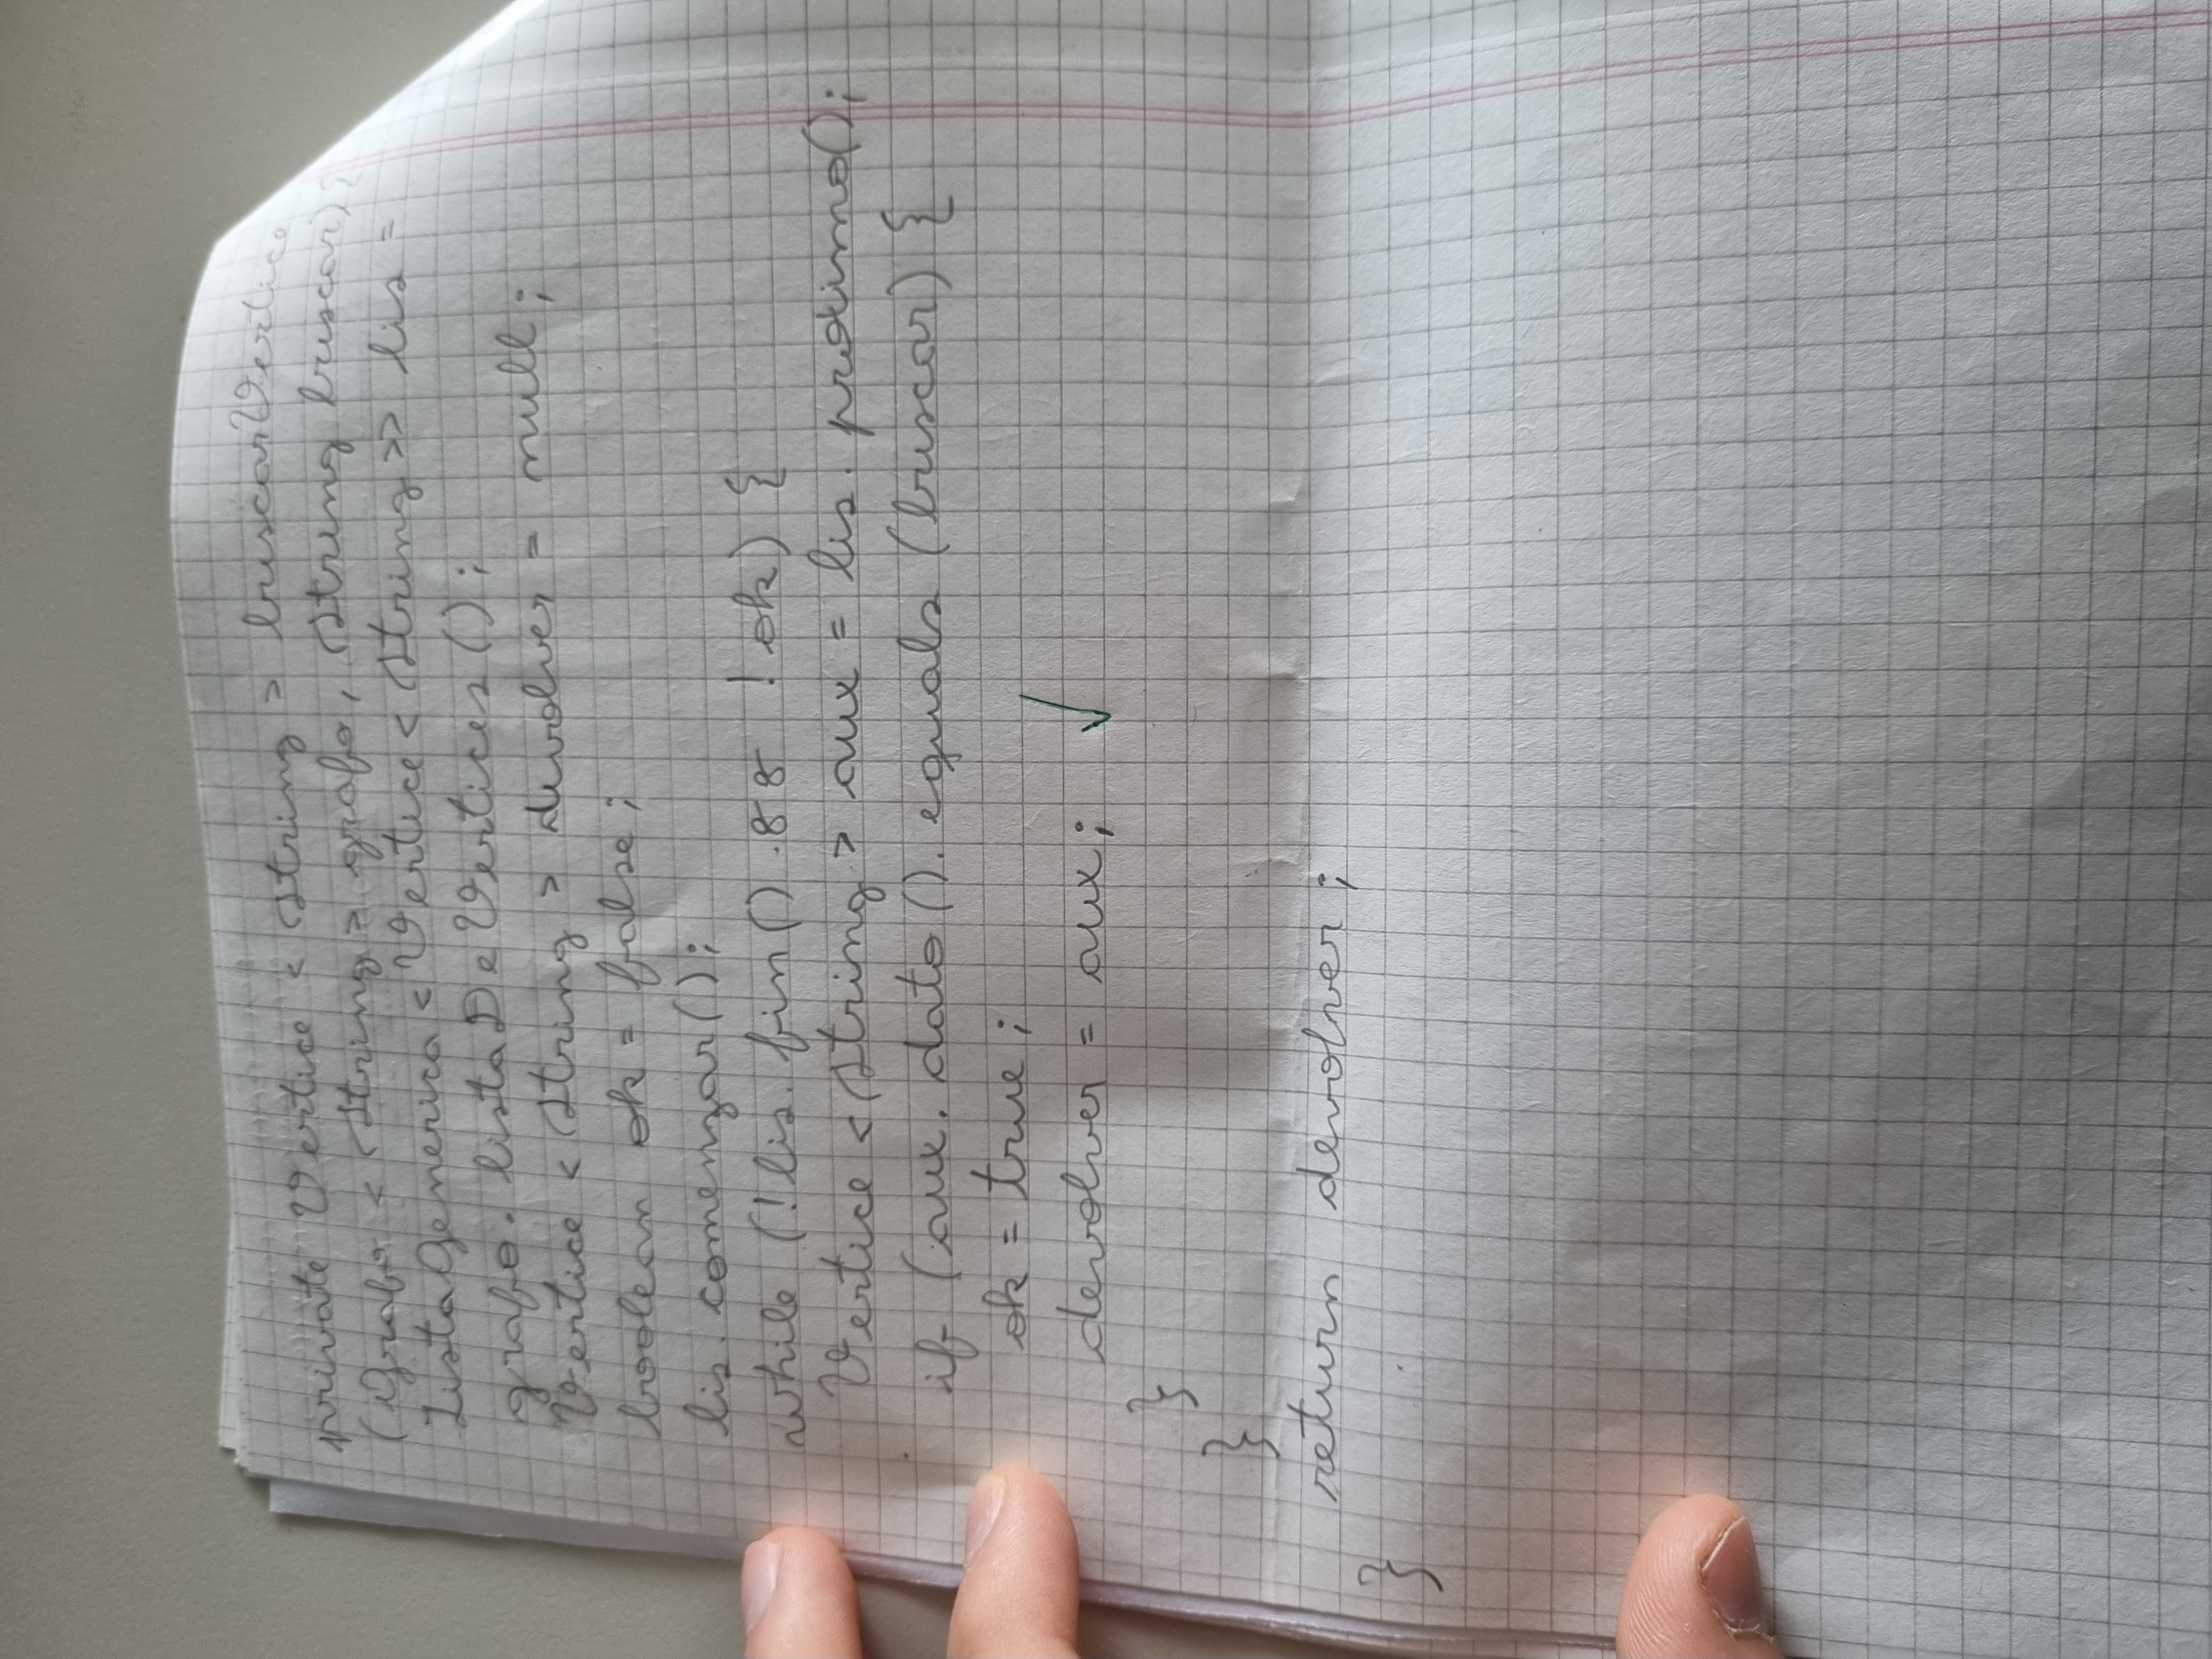 private Vertice < String > buscarVertice
(Grafo < String > grafo, String buscar) {
ListaGenerica < Vertice < String >> lis =
grafo. listaDeVertices ();
Vertice < String > devolver = null;
boolean ok = false;
lis. comenzar();
while (!lis. fin() && !ok) {
Vertice < String > aux = lis. proximo();
if (aux. dato (). equals (buscar) {
ok = true;
devolver = aux;
}
}
return devolver;
}